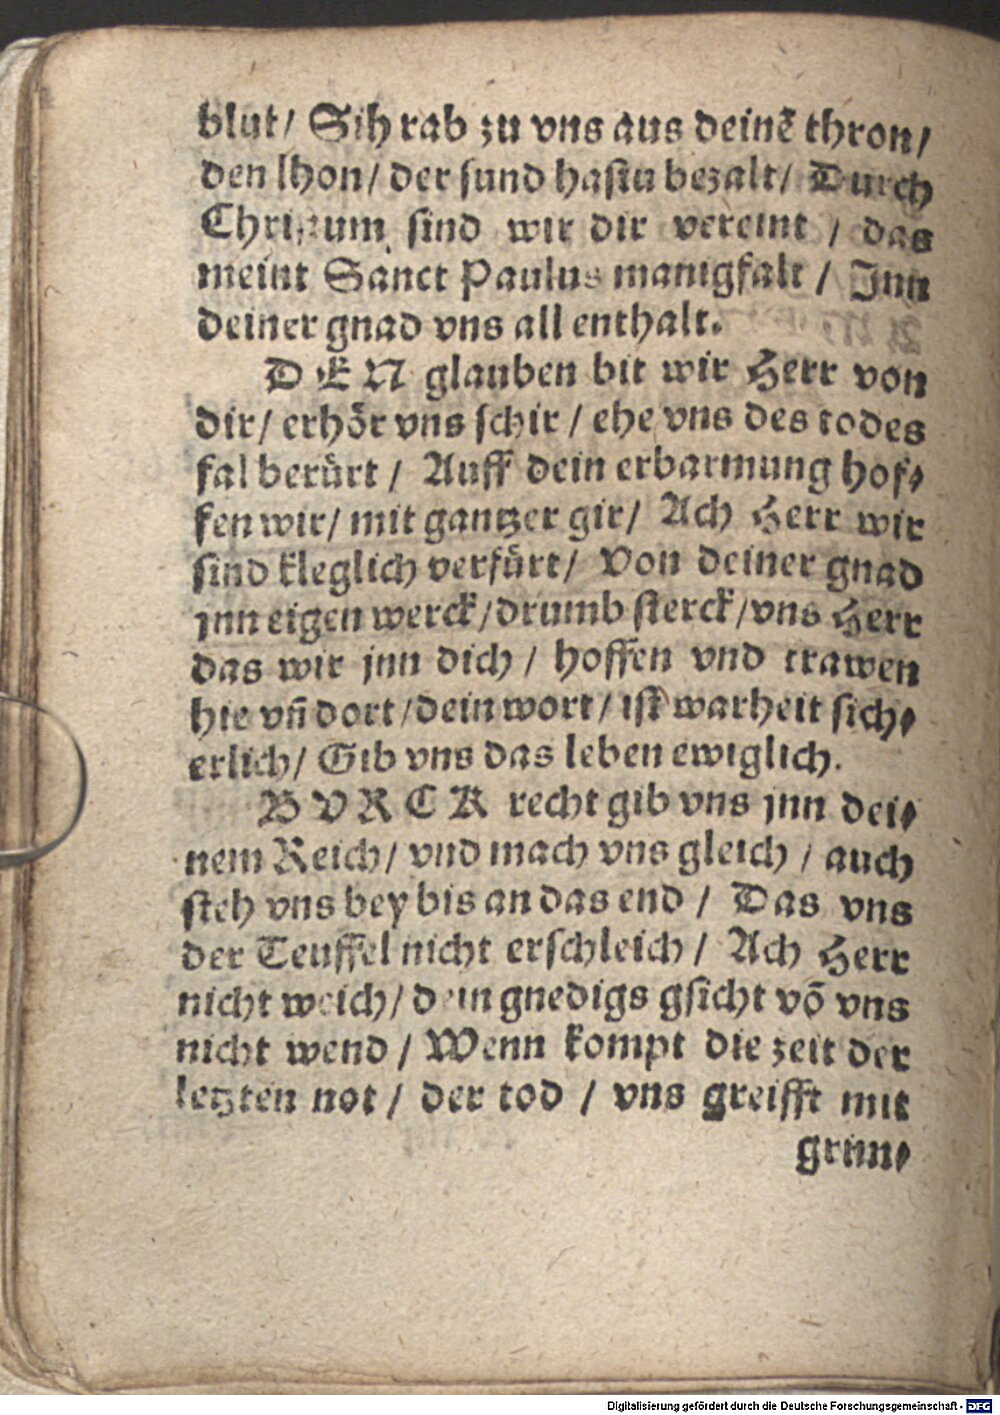 blut/ Sih rab zu vns aus deinē thron/
den lhon/ der sund hastu bezalt/ Durch
Christum sind wir dir vereint / das
meint Sanct Paulus manigfalt / Inn
deiner gnad vns all enthalt.
DEN glauben bit wir Herr von
dir/ erhör vns schir / ehe vns des todes
fal berürt / Auff dein erbarmung hof⸗
fen wir/ mit gantzer gir/ Ach Herr wir
sind kleglich verfürt/ Von deiner gnad
jnn eigen werck/drumb sterck/vns Herr
das wir jnn dich / hoffen vnd trawen
hie vñ dort/dein wort/ ist warheit sich⸗
erlich/ Gib vns das leben ewiglich.
BVRCK recht gib vns jnn dei⸗
nem Reich/ vnd mach vns gleich / auch
steh vns bey bis an das end / Das vns
der Teuffel nicht erschleich / Ach Herr
nicht weich/ dein gnedigs gsicht võ vns
nicht wend / Wenn kompt die zeit der
letzten not / der tod / vns greifft mit
grim⸗
Digitalisierung gefördert durch die Deutsche Forschungsgemeinschaft - DFG